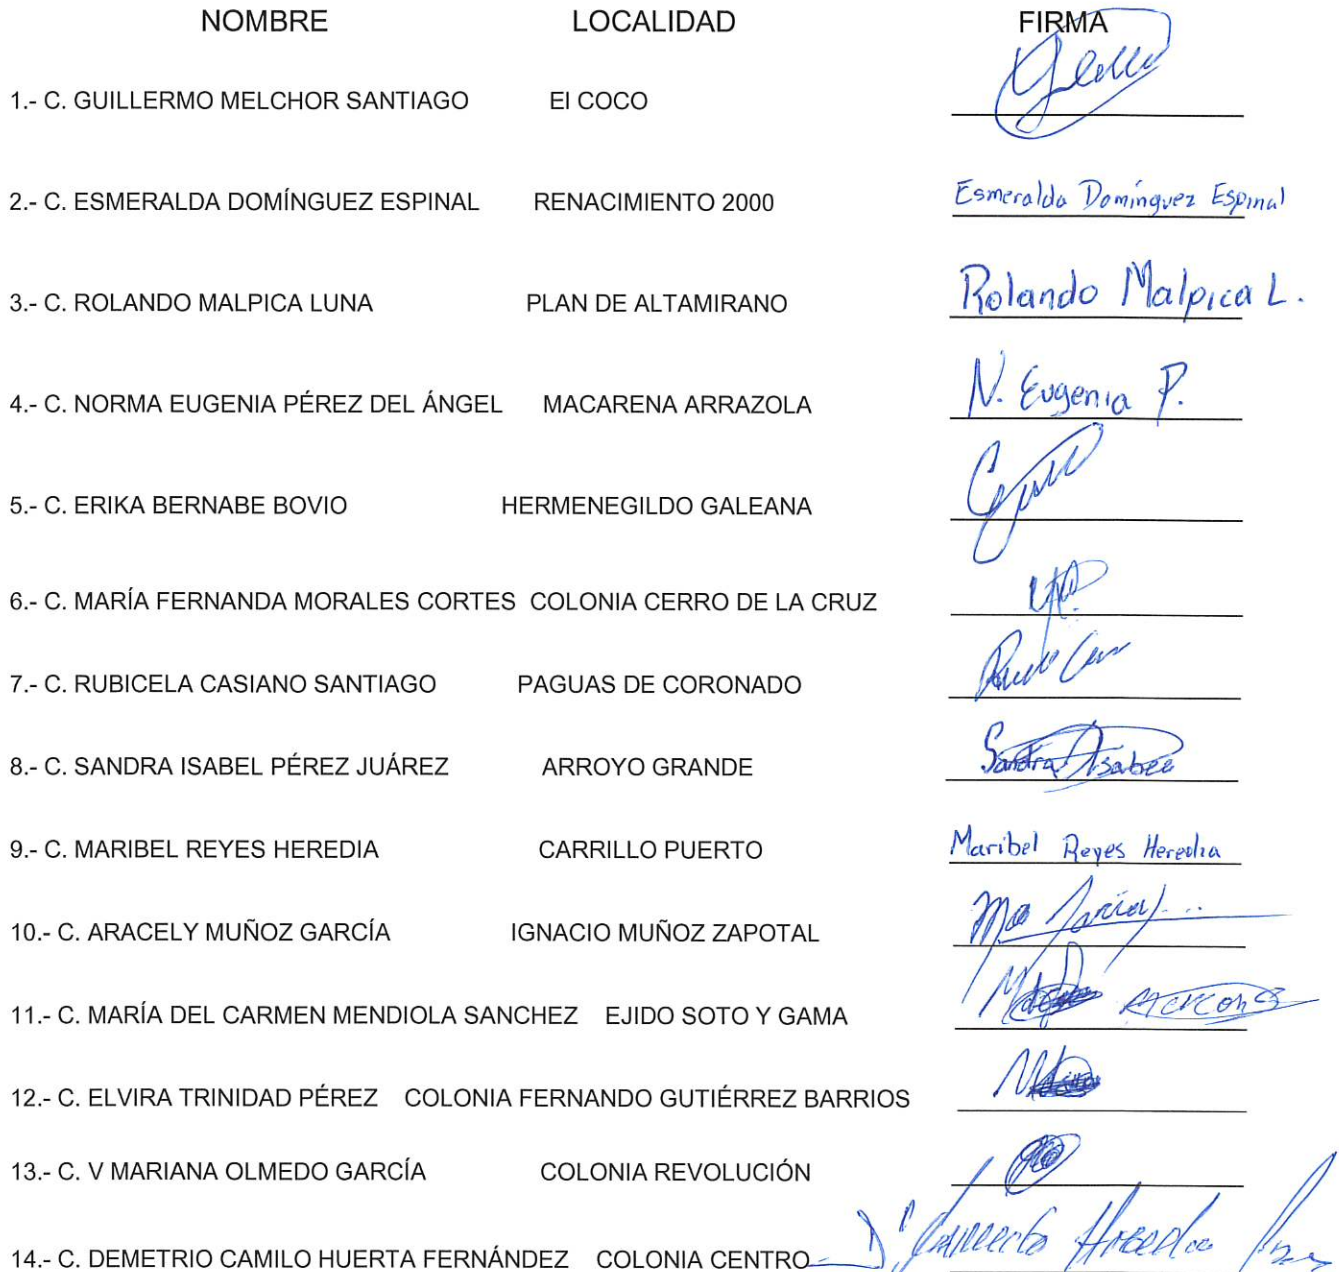 NOMBRE LOCALIDAD FIRMA
1.- C. GUILLERMO MELCHOR SANTIAGO El COCO
2.- C. ESMERALDA DOMÍNGUEZ ESPINAL RENACIMIENTO 2000 Esmeralda Domínguez Espinal
3.- C. ROLANDO MALPICA LUNA PLAN DE ALTAMIRANO Rolando Malpica L.
4.- C. NORMA EUGENIA PÉREZ DEL ÁNGEL MACARENA ARRAZOLA N. Eugenia P.
5.- C. ERIKA BERNABE BOVIO HERMENEGILDO GALEANA
6.- C. MARÍA FERNANDA MORALES CORTES COLONIA CERRO DE LA CRUZ
7.- C. RUBICELA CASIANO SANTIAGO PAGUAS DE CORONADO
8.- C. SANDRA ISABEL PÉREZ JUÁREZ ARROYO GRANDE Sandra Isabel
9.- C. MARIBEL REYES HEREDIA CARRILLO PUERTO Maribel Reyes Heredia
10.- C. ARACELY MUÑOZ GARCÍA IGNACIO MUÑOZ ZAPOTAL
11.- C. MARÍA DEL CARMEN MENDIOLA SANCHEZ EJIDO SOTO Y GAMA
12.- C. ELVIRA TRINIDAD PÉREZ COLONIA FERNANDO GUTIÉRREZ BARRIOS
13.- C. V MARIANA OLMEDO GARCÍA COLONIA REVOLUCIÓN
14.- C. DEMETRIO CAMILO HUERTA FERNÁNDEZ COLONIA CENTRO